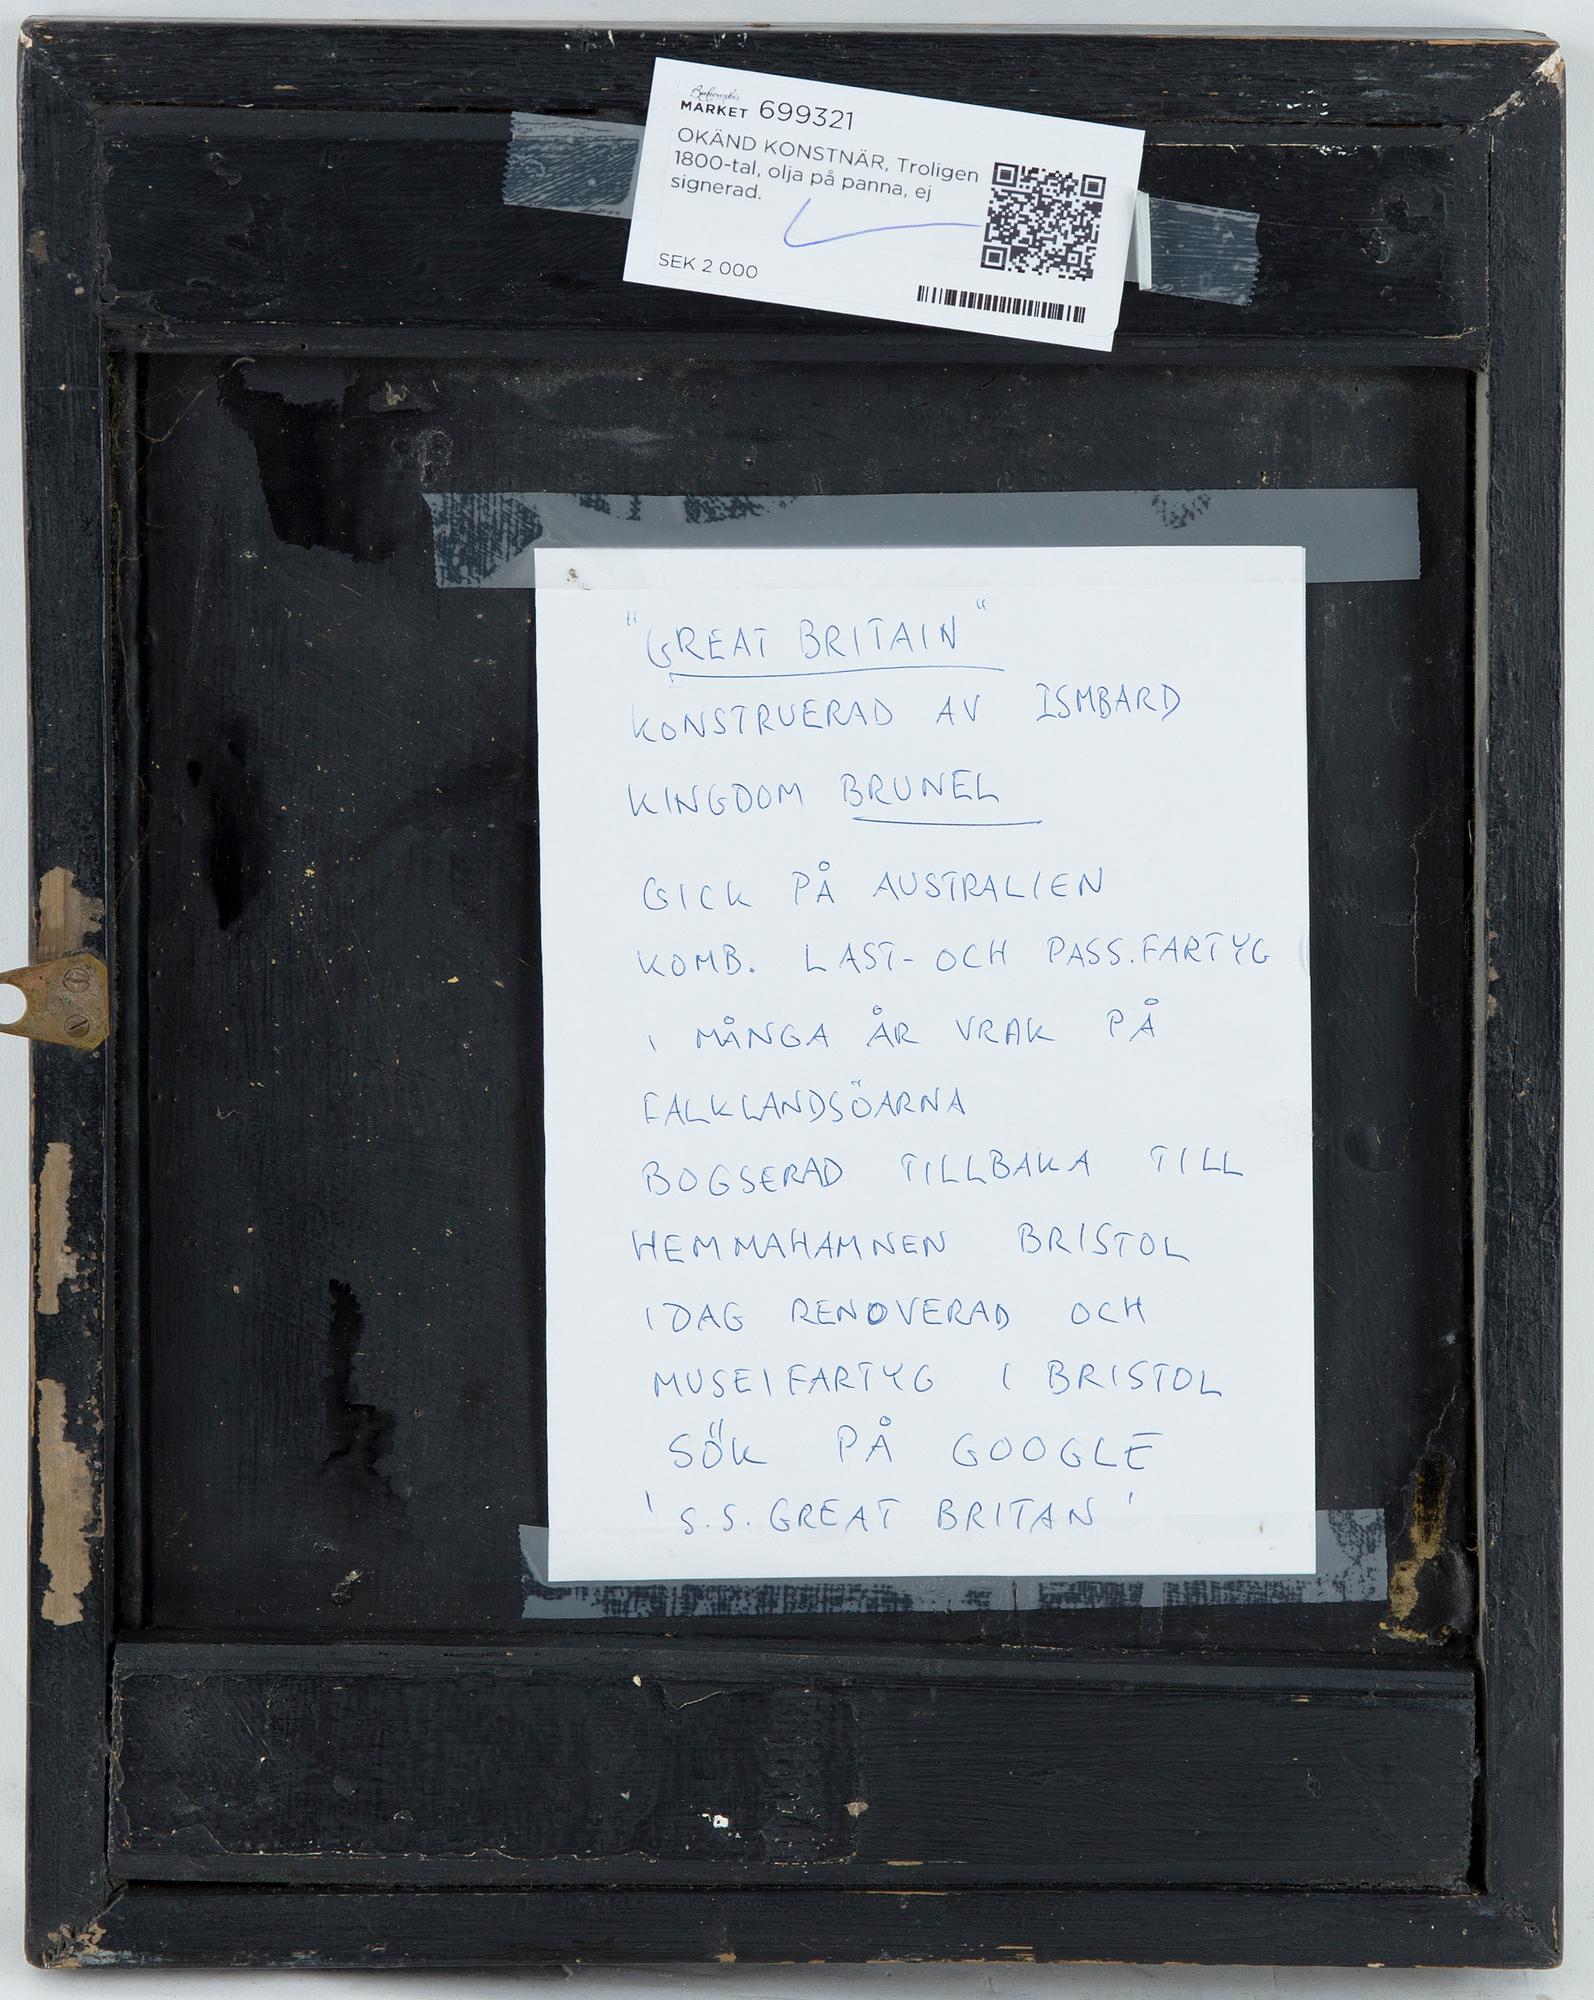 Bukowskis
MARKET 699321
OKÄND KONSTNÄR, Troligen
1800-tal, olja på panna, ej
signerad.
SEK 2 000
"GREAT BRITAIN"
KONSTRUERAD AV ISMBARD
KINGDOM BRUNEL
GICK PÅ AUSTRALIEN
KOMB. LAST- OCH PASS.FARTYG
I MÅNGA ÅR VRAK PÅ
FALKLANDSÖARNA
BOGSERAD TILLBAKA TILL
HEMMAHAMNEN BRISTOL
IDAG RENOVERAD OCH
MUSEIFARTYG I BRISTOL
SÖK PÅ GOOGLE
'S.S. GREAT BRITAN'